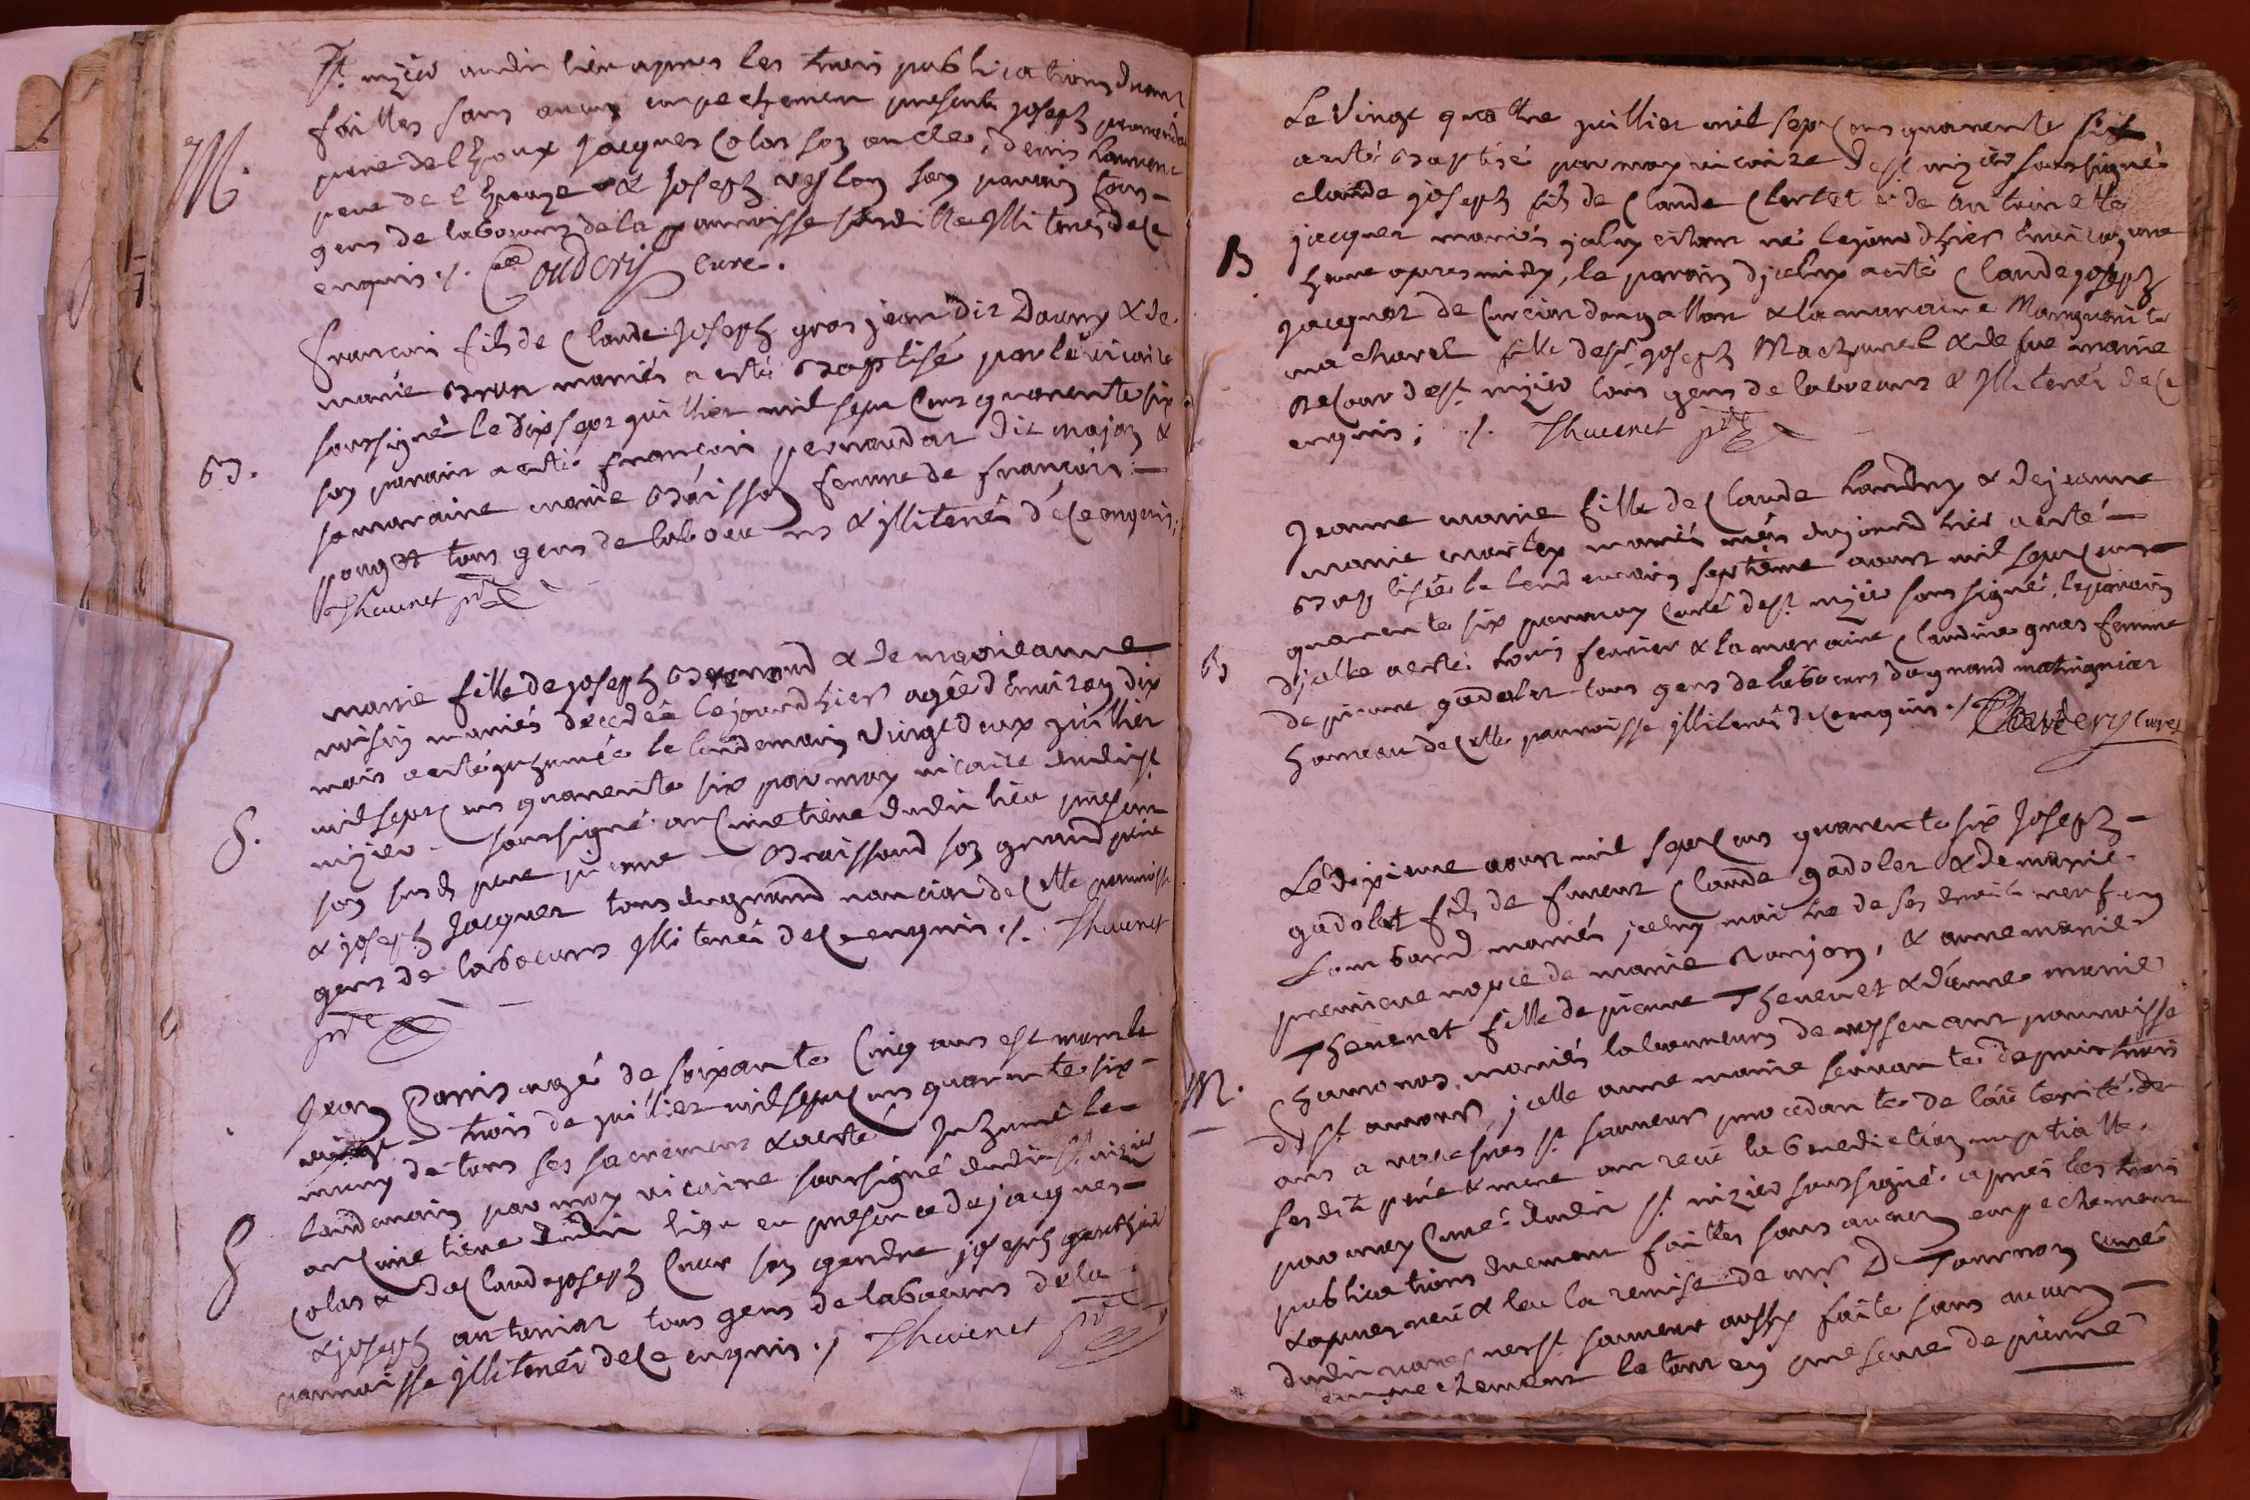 St. nizier audit lieu apres les trois publications duement
faittes sans aucun empechement presents joseph
M.
pere de lépoux jacques Colas son oncle, denis laurent
pere de l'épouze & joseph son parain tous
gens de labours de la parroisse susditte illiterés de ce
enquis ./. Couderis curé.
françois fils de Claude joseph gros jean dit Dauny & de
marie brun mariés a esté baptisé par le vicaire
soussigné le dix sept juillier mil sept cens quarente six
B.
son parain a esté françois pernaudat dit majon &
sa maraine marie braisson femme de françois
pouget tous gens de labours & illiterés de ce enquis;
Thevenet ptre
marie fille de joseph & de marie anne
voisin mariés décédée le jourd'hier agée d'environ dix
mois a esté inhumée le lendemain vingt deux juillier
mil sept cens quarente six par moy vicaire dudit st.
S.
nizier soussigné au cimetiere dudit lieu présent
son susd. pere pierre braissoud son grand pere
& joseph jacquet tous du grand nanciat de cette parroisse
gens de labours illiterés de ce enquis ./. Thevenet
ptre
Jean Paris agé de soixante cinq ans est mort le
vingt trois de juillier mil sept cens quarente six
muny de tous ses sacremens & a esté inhumé le
lendemain par moy vicaire soussigné dudit st. nizier
S
au cimetiere dudit lieu en presence de jacques
Colas & de Claude joseph son gendre joseph
& joseph antoniat tous gens de labours de la
parroisse illiterés de ce enquis ./ Thevenet ptre
Le vingt quatre juillier mil sept cens quarente six
a esté baptisé par moy vicaire de st. nizier soussigné
claude joseph fils de Claude Clertet & de antoinette
jacquet mariés jceluy estant né le jour d'hier environ une
B
heure apres midy, le parain d'jceluy a esté Claude joseph
jacquet de Curciat dongallon & la maraine Marguerite
macharel fille de ft. joseph Macharel & de fue marie
decour de st. nizier tous gens de labeurs & illiterés de ce
enquis; ./. Thevenet ptre
Jeanne marie fille de Claude landry & de jeanne
marie mariés née du jourd'hier a esté
baptisée le lendemain septieme aoust mil sept cens
quarente six par moy curé de st. nizier soussigné, le parain
B
d'jcelle a esté louis ferrier & la maraine Claudine gras femme
de pierre gadolet tous gens de labours du grand matrigniat
hameau de cette parroisse illiterés de ce enquis ./. Couderis curé
Le dixieme aoust mil sept cens quarente six joseph
gadolet fils de funt Claude gadolet & de marie
Lombard mariés jceluy maitre de ses droits veuf en
premiere nopce de marie ranjon, & anne marie
Thevenet fille de pierre Thevenet & d'anne marie
Chamonod mariés laboureurs de parroisse
M.
de st. amour, jcelle anne marie servante depuis trois
ans a st. sauveur procedante de l'autorité de
ses dits pere & mere ont recu la benediction nuptialle
par moy Curé dudit st. nizier soussigné apres les trois
publications duement faittes sans aucun empechement
& apres veu & leu la remise de mr. De Tournon curé
dudit st. sauveur aussy faite sans aucun
empechement le tout en presence de pierre